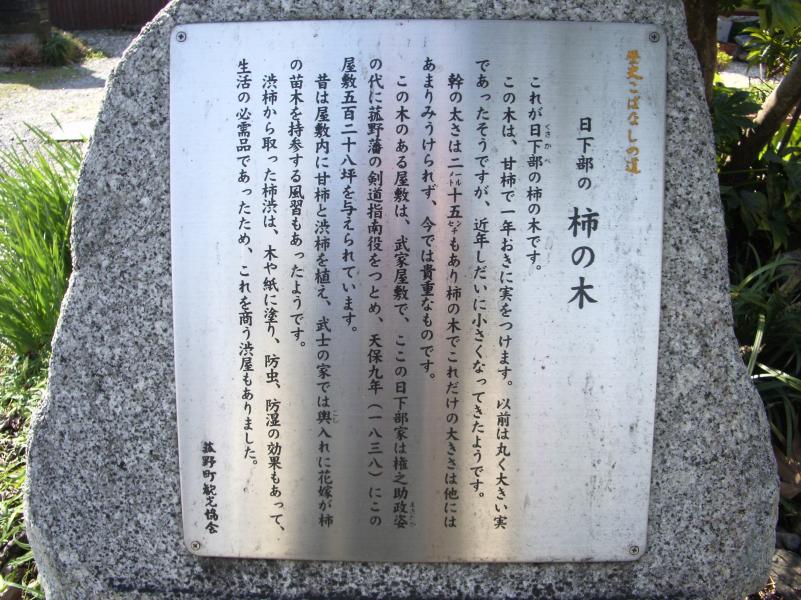 歴史こばなしの道
日下部の 柿の木
これが日下部の柿の木です。
この木は、甘柿で一年おきに実をつけます。以前は丸く大きい実
であったそうですが、近年しだいに小さくなってきたようです。
幹の太さは二㍍十五㌢もあり柿の木でこれだけの大きさは他には
あまりみうけられず、今では貴重なものです。
この木のある屋敷は、武家屋敷で、ここの日下部家は権之助政姿
の代に菰野藩の剣道指南役をつとめ、天保九年（一八三八）にこの
屋敷五百二十八坪を与えられています。
昔は屋敷内に甘柿と渋柿を植え、武士の家では輿入れに花嫁が柿
の苗木を持参する風習もあったようです。
渋柿から取った柿渋は、木や紙に塗り、防虫、防湿の効果もあって、
生活の必需品であったため、これを商う渋屋もありました。
菰野町観光協会